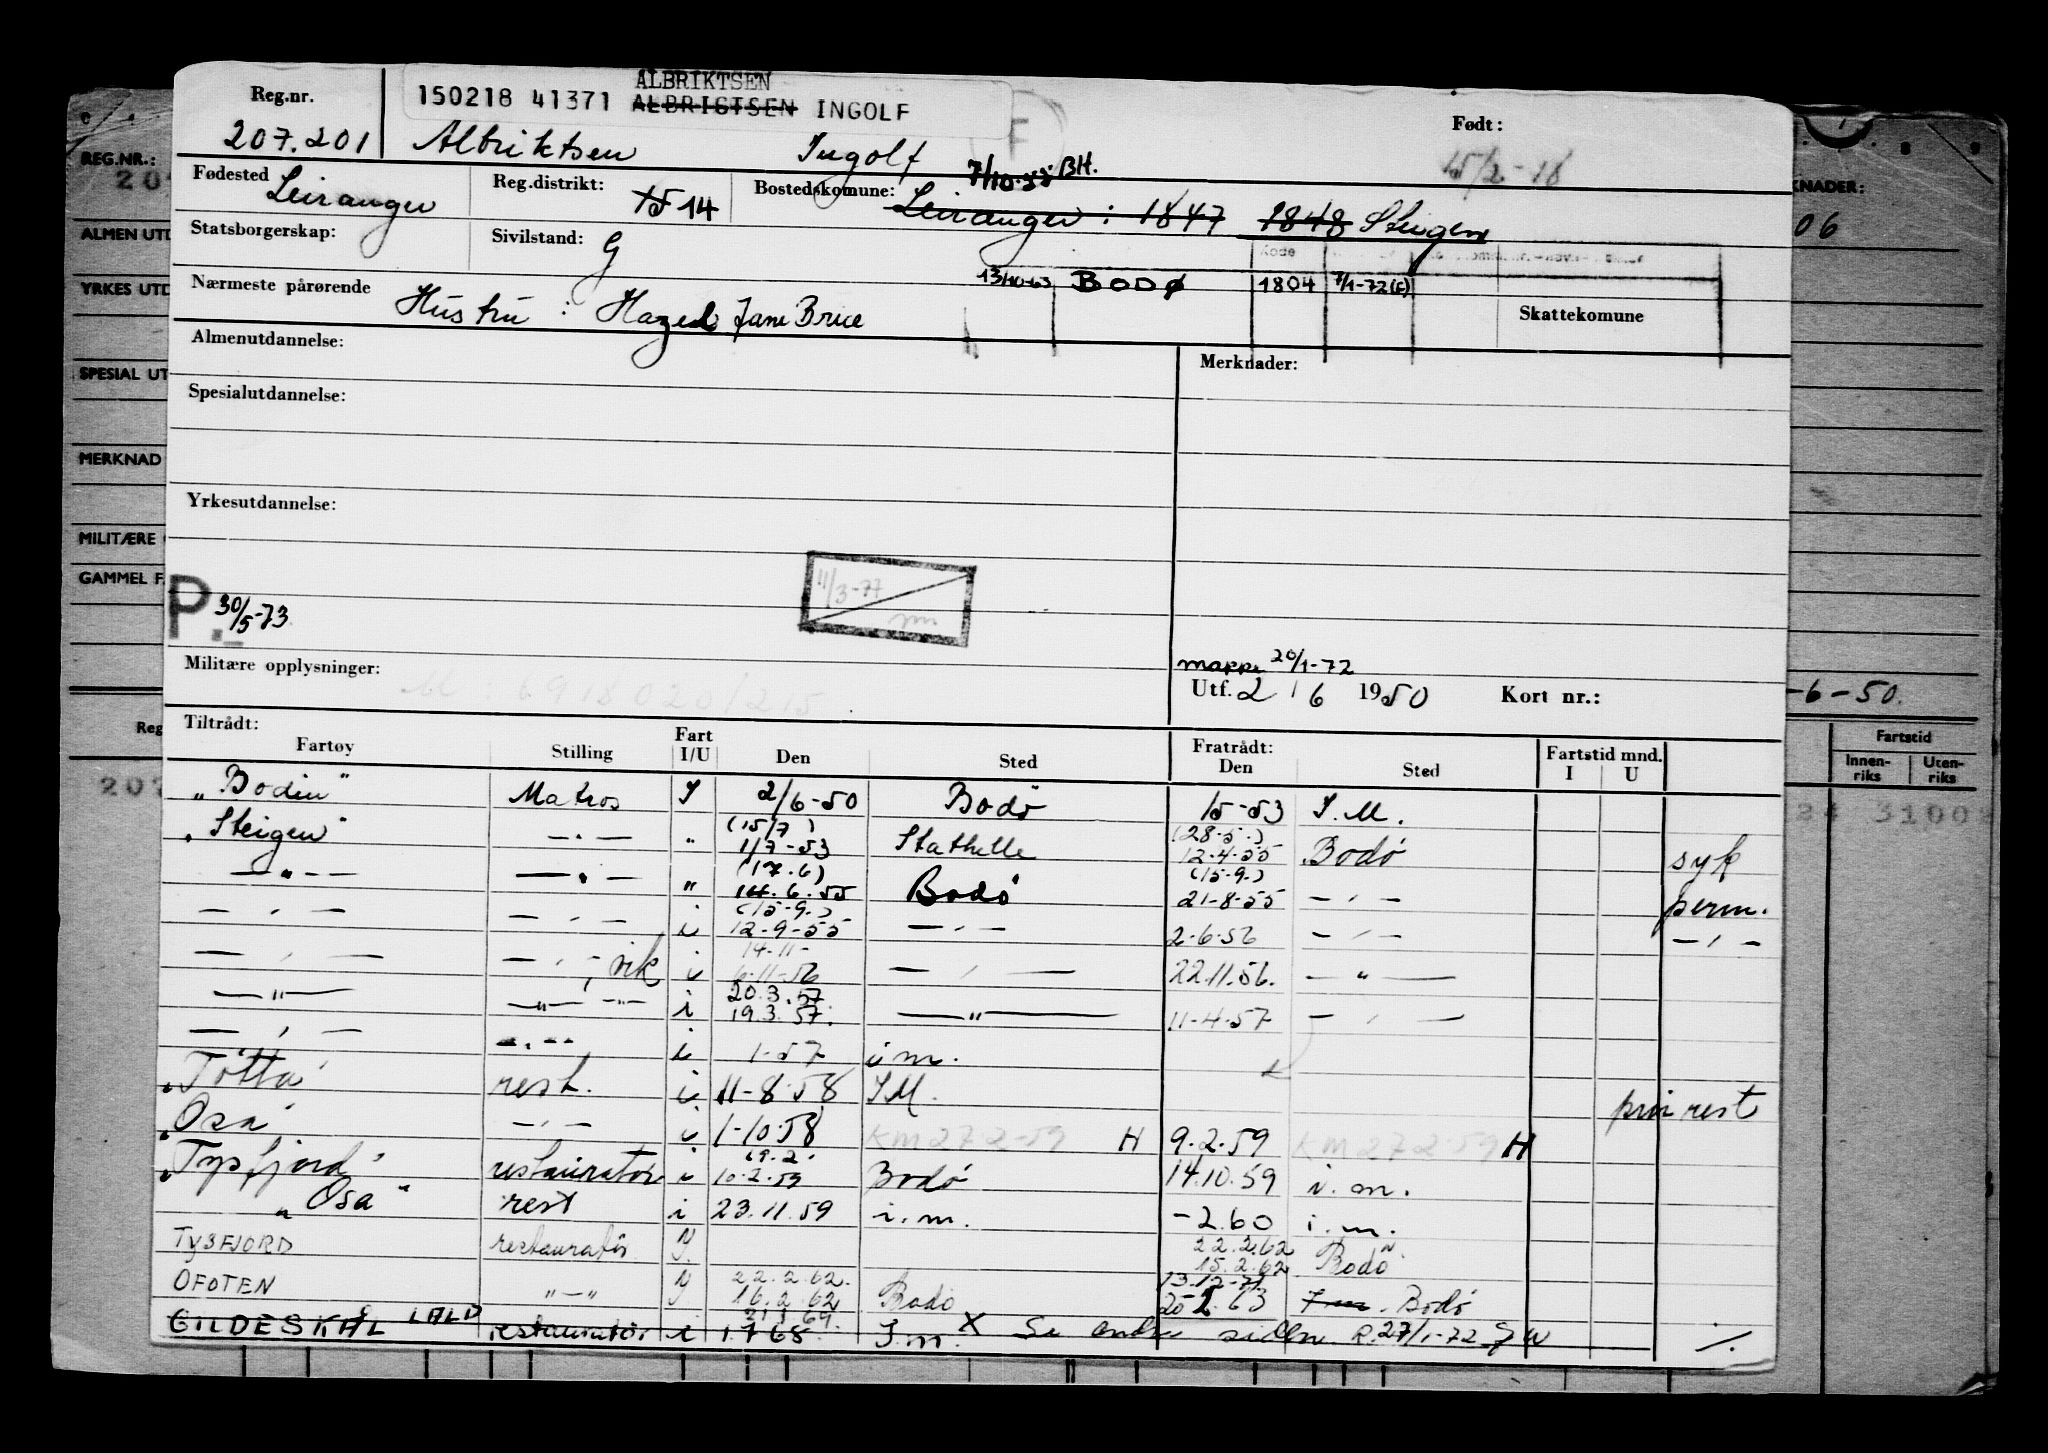 Reg.nr.
207.201
ALBRIKTSEN
150218 41371 ALBRIGTSEN INGOLF
Albriktsen Ingolf
F
Født:
15/2-18
Fødested
Leiranger
Reg.distrikt:
15 14
Bostedskomune:
7/10-55 BH.
Leiranger : 1847 1848 Steigen
Statsborgerskap:
Sivilstand:
G
Kode
13/10-63 BODØ 1804 7/1-72 (F)
Nærmeste pårørende
Hustru : Hazel Jane Brue
Skattekomune
Almenutdannelse:
Merknader:
Spesialutdannelse:
Yrkesutdannelse:
11/3-77
P. 30/5-73
Militære opplysninger:
mappe 20/1-72
Utf. 2 / 6 1950 Kort nr.:
Tiltrådt:
Fartøy Stilling Fart I/U Den Sted
Fratrådt:
Den Sted
Fartstid mnd.
I U
"Bodin" Matros I 2/6-50 Bodø 15-53 I.M.
(15/7) (28-5.)
"Steigen" —"— " 1/7-53 Stathelle 12-4-55 Bodø syk
(17.6) (15-9.)
—"— —"— " 14.6.55 Bodø 21-8-55 —"— perm.
(15-9.)
—"— —"— i 12-9-55 —"— 2-6-56 —"— —"—
14-11-
—"— —"—, vik i 6-11-56 —"— 22.11.56. —"—
20.3.57
—"— —"— —"— i 19.3.57. —"— 11-4-57 —"—
—"— —"— i 1-57 i m.
"Tøtta" rest. i 11-8-58 I M. priv rest
"Osa" —"— i 1-10-58 KM 27 2-59 H 9.2.59 KM 27 2 59 H
19.2.
"Tysfjord" restauratør i 10-2-59 Bodø 14.10.59 i.m.
"Osa" rest i 23.11.59 i.m. -2.60 i.m.
22.2.62
TYSFJORD restauratør 15.2.62 Bodø
22.2.62. 13.12-71
OFOTEN "—" 16.2.62 Bodø Bodø
GILDESKÅL restauratør i 1.7 68. I.m. X Se andre siden R.27/1-72
REG.NR.:
ALMEN UTD
YRKES UTD
SPESIAL UT
MERKNAD
MILITÆRE
GAMMEL F.
Reg
207
KNADER:
06
-6-50.
Fartstid
Innen-
riks
Uten-
riks
24 3100